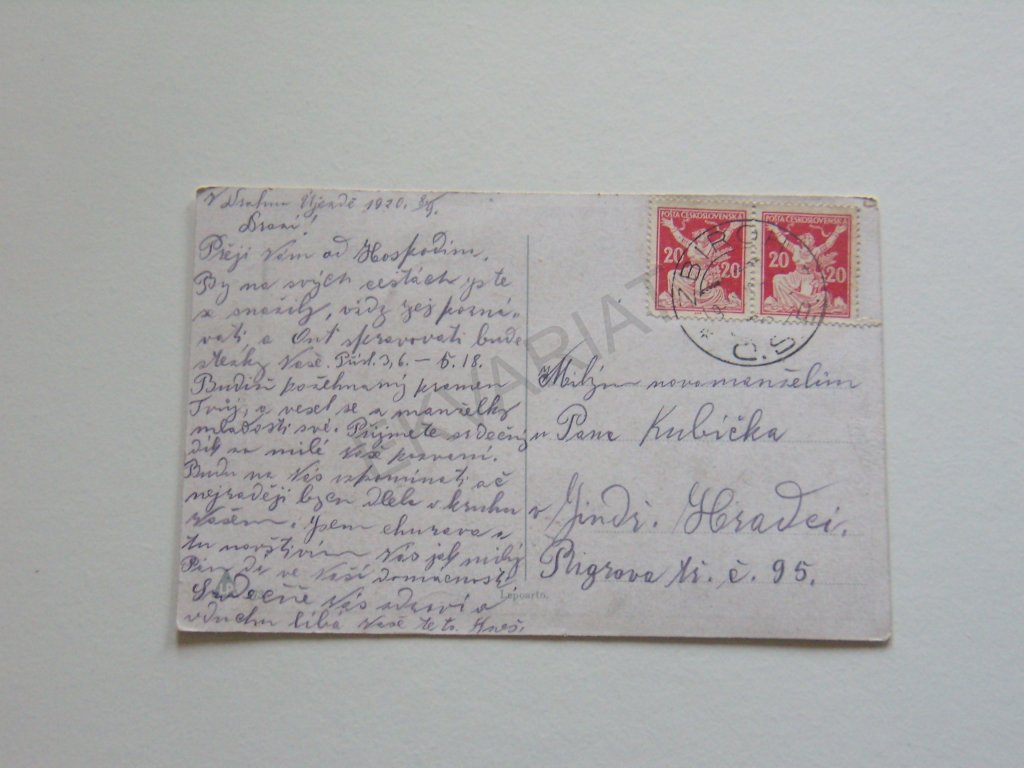 V Drahém Újezdě 1920.
Drazí!
Přeji Vám od Hospodim.
By na svých cestách jste
se snažily, vždy jej pozná-
vati a Ont spravovati bude
stezky Vaše. Přísl. 3,6. – 5.18.
Budiž požehnaný pramen
Tvůj, a vesel se z manželky
mladosti své. Přijmete srdečný
dík za milé Vaše pozvaní.
Budu na Vás vzpomínati ač
nejraději bych dlela v kruhu
Vašem. Jsem churava a
tu navštivím Vás jak milý
Pán dá ve Vaší domácnosti
Srdečně Vás zdraví a
v duchu líbá Vaše teta
POŠTA ČESKOSLOVENSKÁ
20 20
POŠTA ČESKOSLOVENSKÁ
20 20
ZBIROH
Č.S.P.
Milým novomanželům
Pana Kubíčka
v Jindř. Hradci.
Rigrova tř. č. 95.
Lepoarto.
EKVARIAT